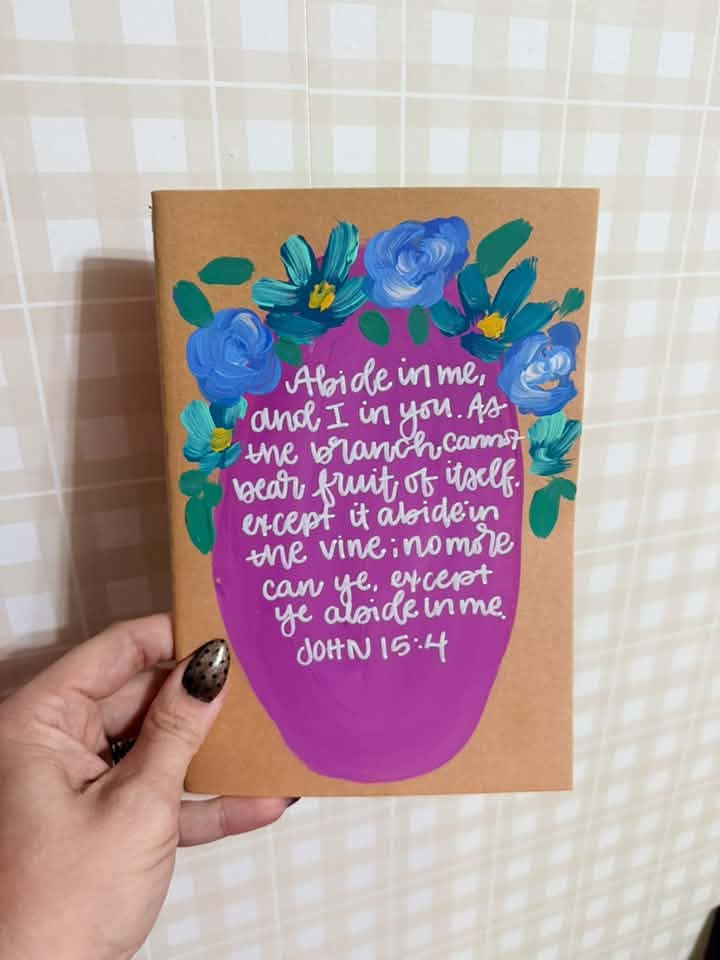 Abide in me,
and I in you. As
the branch cannot
bear fruit of itself.
except it abide in
the vine; no more
can ye, except
ye abide in me.
JOHN 15:4